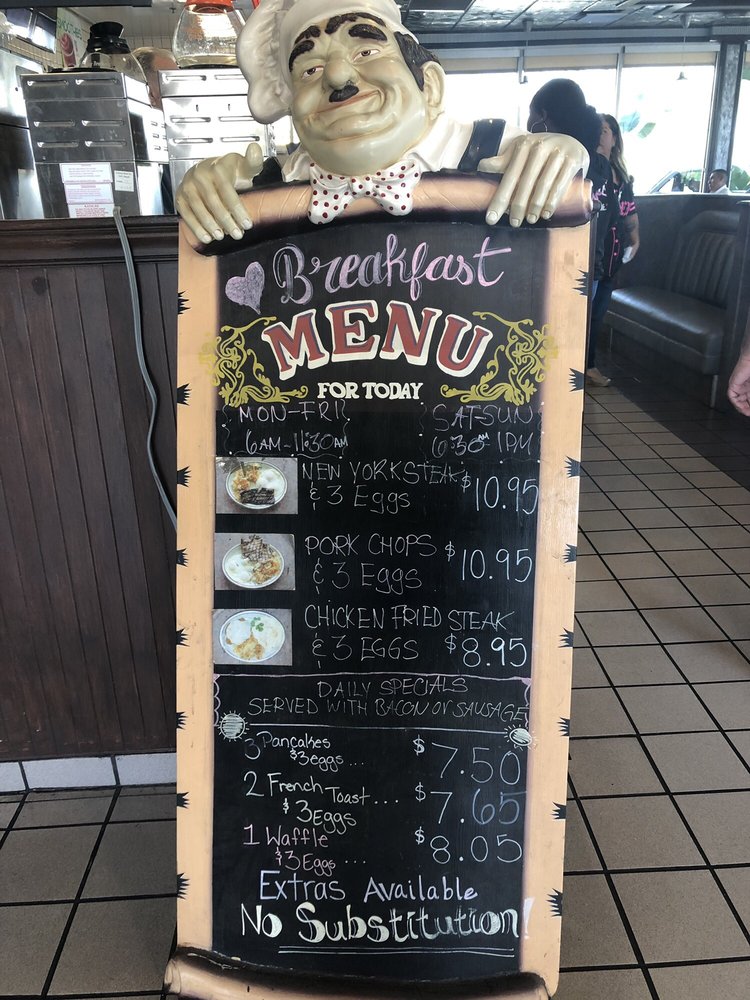 Breakfast
MENU
FOR TODAY
MON-FRI
6AM-11:30AM
SAT-SUN
6:30AM 1PM
NEW YORK STEAK
& 3 Eggs $10.95
PORK CHOPS
& 3 Eggs $10.95
CHICKEN FRIED STEAK
& 3 EGGS $8.95
DAILY SPECIALS
SERVED WITH BACON or SAUSAGE
3 Pancakes
& 3 eggs ... $7.50
2 French Toast ... $7.65
& 3 Eggs
1 Waffle
& 3 Eggs ... $8.05
Extras Available
No Substitution!